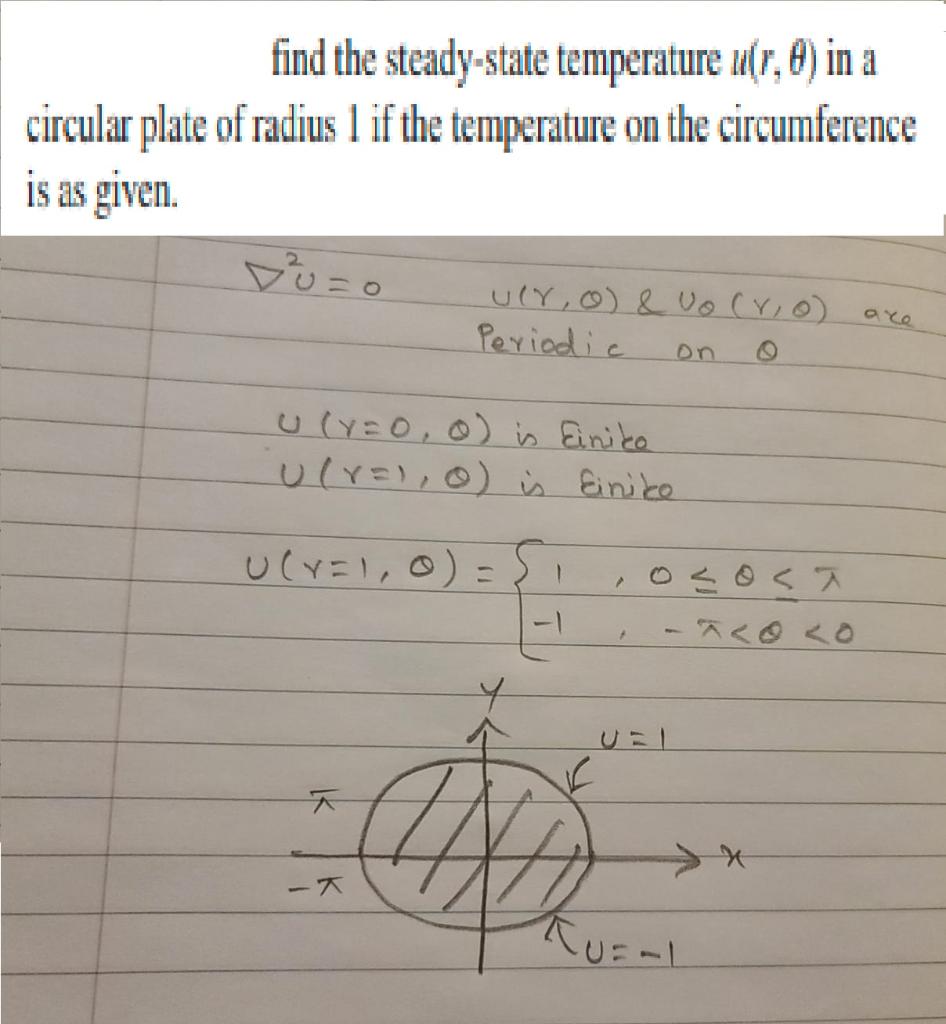 find the steady-state temperature u(r, θ) in a
circular plate of radius 1 if the temperature on the circumference
is as given.
∇²u = 0 u(r, θ) & uθ (r, θ) are
Periodic on θ
u (r=0, θ) is finite
u (r=1, θ) is finite
u(r=1, θ) = { 1 , 0 ≤ θ ≤ π
-1 , -π < θ < 0
y
u = 1
π
x
-π
u = -1